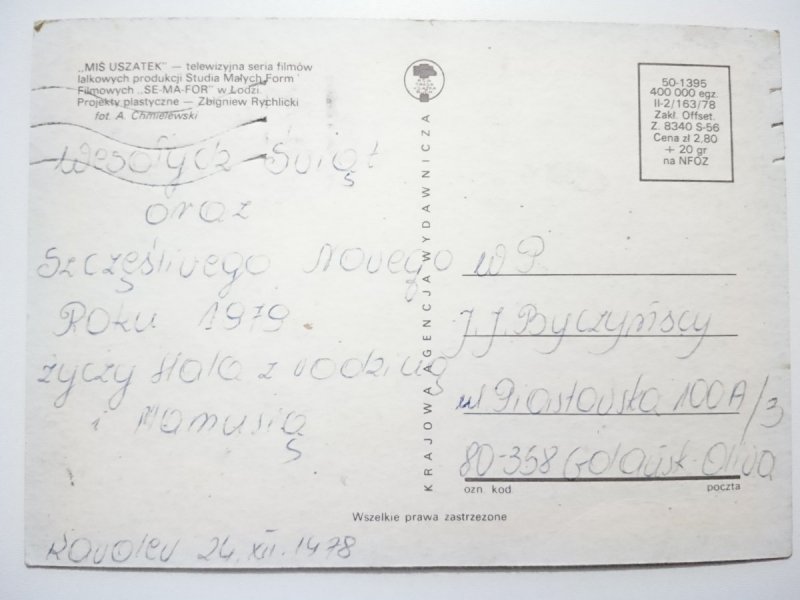 „MIŚ USZATEK" — telewizyjna seria filmów
lalkowych produkcji Studia Małych Form
Filmowych „SE-MA-FOR" w Łodzi.
Projekty plastyczne — Zbigniew Rychlicki
fot. A. Chmielewski
50-1395
400 000 egz.
II-2/163/78
Zakł. Offset.
Z. 8340 S-56
Cena zł 2,80
+ 20 gr
na NFOZ
KRAJOWA AGENCJA WYDAWNICZA
Wesołych Świąt
oraz
Szczęśliwego Nowego
Roku 1979
życzy Hala z rodziną
i Mamusią
W P.
J. J. Byczyńscy
ul Piastowska 100A/3
80-358 Gdańsk-Oliwa
ozn. kod. poczta
Wszelkie prawa zastrzeżone
24.XII.1978